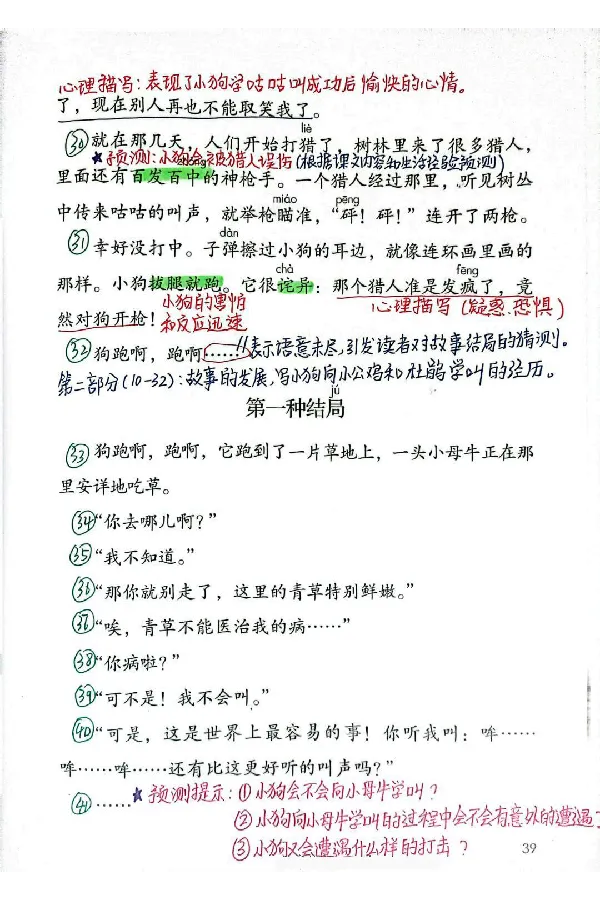 心理描写：表现了小狗学咕咕叫成功后愉快的心情。
了，现在别人再也不能取笑我了。
liè
㉚就在那几天，人们开始打猎了，树林里来了很多猎人，
★预测：小狗会被猎人误伤(根据课文内容和生活经验预测)
zhòng
里面还有百发百中的神枪手。一个猎人经过那里，听见树丛
miáo pēng
中传来咕咕的叫声，就举枪瞄准，“砰！砰！”连开了两枪。
dàn
㉛幸好没打中。子弹擦过小狗的耳边，就像连环画里画的
chà fēng
那样。小狗拔腿就跑。它很诧异：那个猎人准是发疯了，竟
小狗的害怕 心理描写(疑惑、恐惧)
然对狗开枪！和反应迅速
㉜狗跑啊，跑啊……//表示语意未尽，引发读者对故事结局的猜测。
第二部分(10-32)：故事的发展，写小狗向小公鸡和杜鹃学叫的经历。
jú
第一种结局
㉝狗跑啊，跑啊，它跑到了一片草地上，一头小母牛正在那
里安详地吃草。
㉞“你去哪儿啊？”
㉟“我不知道。”
㊱“那你就别走了，这里的青草特别鲜嫩。”
㊲“唉，青草不能医治我的病……”
㊳“你病啦？”
㊴“可不是！我不会叫。”
㊵“可是，这是世界上最容易的事！你听我叫：哞……
哞……哞……还有比这更好听的叫声吗？”
㊶……★预测提示：①小狗会不会向小母牛学叫？
②小狗向小母牛学叫的过程中会不会有意外的遭遇？
③小狗又会遭遇什么样的打击？
39